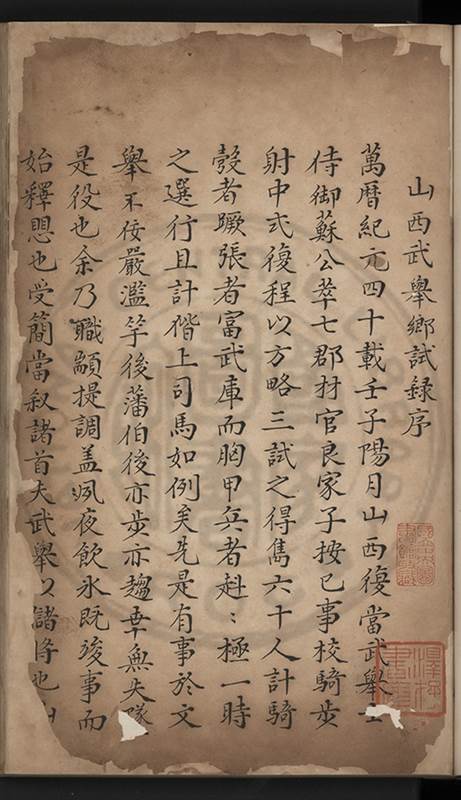 山西武舉鄉試録序
萬曆紀元四十載壬子陽月山西復當武舉
侍御蘇公萃七郡材官良家子按已事校騎步
射中式復程以方略三試之得雋六十人計騎
彀者蹶張者富武庫而胸甲兵者赳〻極一時
之選行且計偕上司馬如例矣先是有事於文
舉不佞嚴濫竽後藩伯後亦步亦趨幸無失隊
是役也余乃職顓提調盖夙夜飲冰既竣事而
始釋愳也受簡當叙諸首夫武舉以儲将也